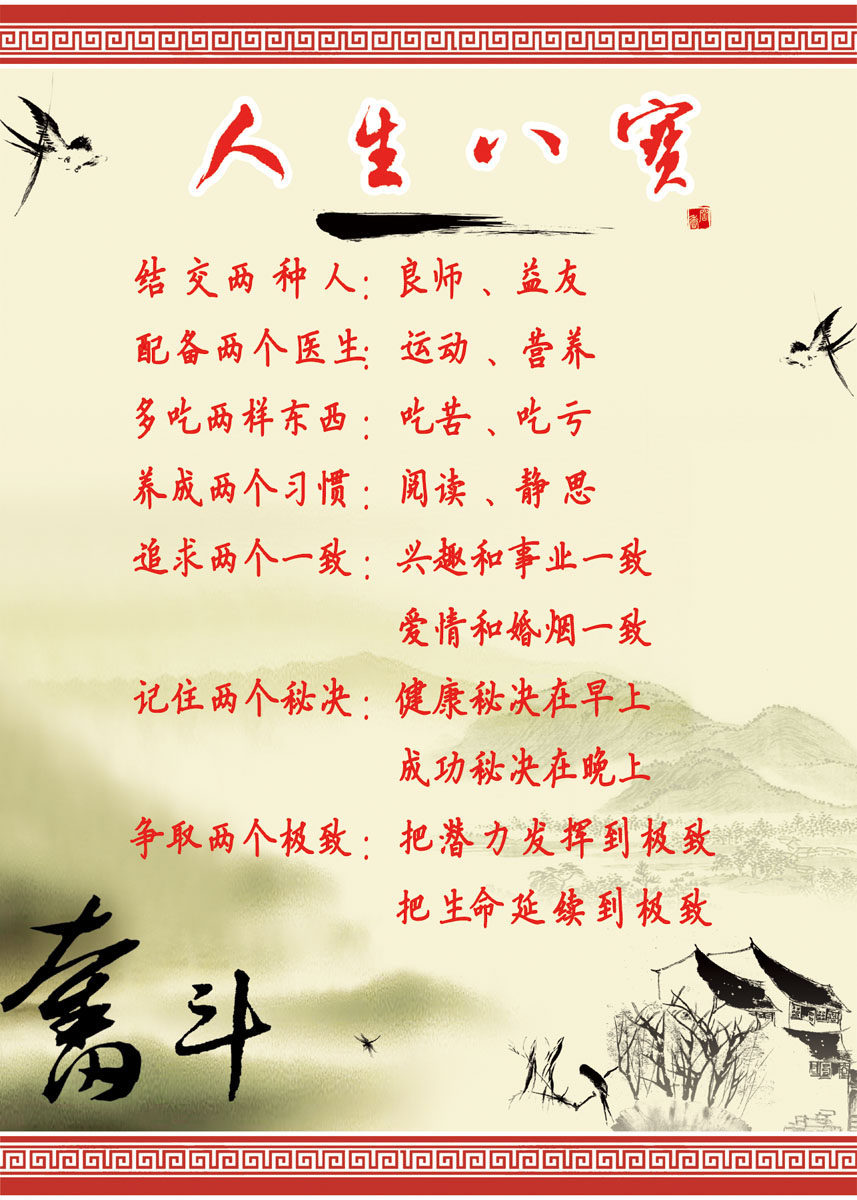 人生八寶
结交两种人：良师、益友
配备两个医生：运动、营养
多吃两样东西：吃苦、吃亏
养成两个习惯：阅读、静思
追求两个一致：兴趣和事业一致
爱情和婚烟一致
记住两个秘决：健康秘决在早上
成功秘决在晚上
争取两个极致：把潜力发挥到极致
把生命延续到极致
奮斗